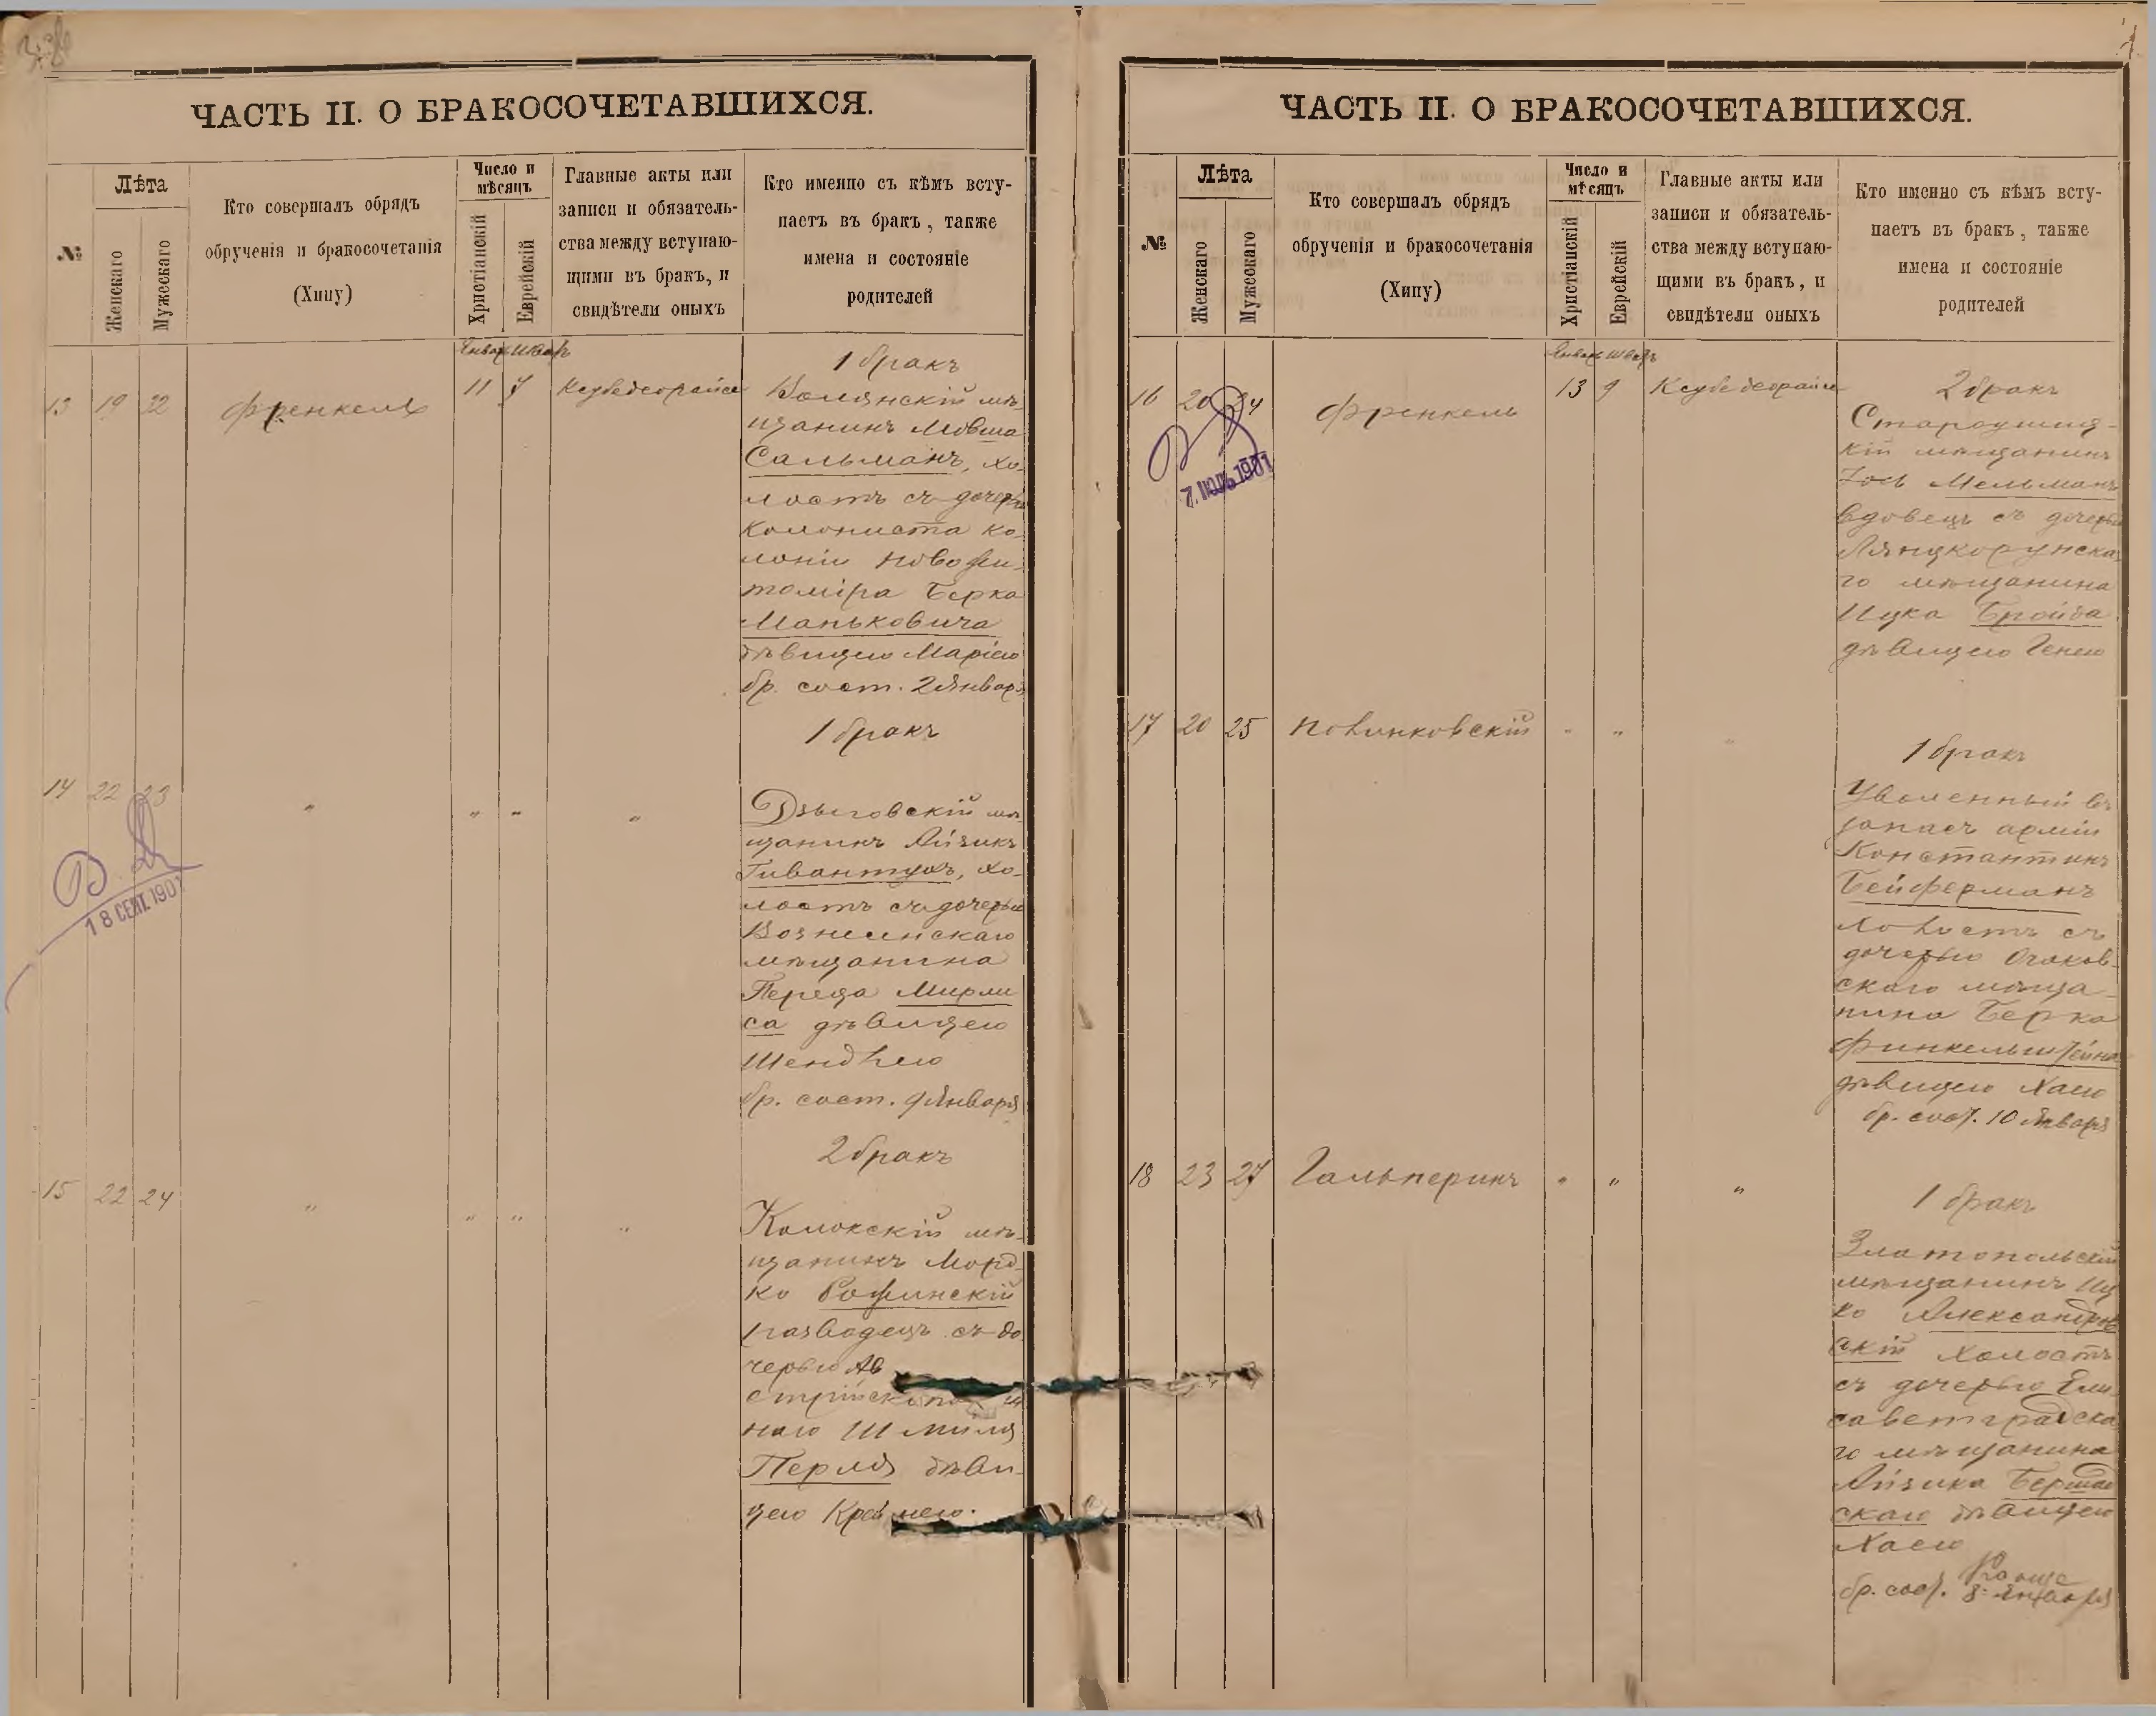 ЧАСТЬ II. О БРАКОСОЧЕТАВШИХСЯ.
№
Лѣта
Женскаго
Мужескаго
Кто совершалъ обрядъ
обрученія и бракосочетанія
(Хипу)
Число и
мѣсяцъ
Христіанскій
Еврейскій
Главные акты или
записи и обязатель-
ства между вступаю-
щими въ бракъ, и
свидѣтели оныхъ
Кто именно съ кѣмъ всту-
паетъ въ бракъ, также
имена и состояніе
родителей
13 19 22 Френкель
Январь Шватъ
11 7
1 бракъ
мѣ-
щанинъ Мовша
Сальманъ, хо-
лостъ съ дочерью
колониста ко-
лоніи Новожи-
томіра Берка
Маньковича
дѣвицею Маріею
бр. сост. 2 Января
14 22 23 " " " "
1 бракъ
Дзыговскій мѣ-
щанинъ Айзикъ
хо-
лостъ съ дочерью
Вознесенскаго
мѣщанина
Переца Мирли
са дѣвицею
Шендлею
бр. сост. 9 Января
В.
18 СЕНТ. 1901
15 22 24 " " " "
2 бракъ
мѣ-
щанинъМорд-
ко
разводецъ съ до
черью Ав
стрійска
наго Шмиля
Перля дѣви-
цею
ЧАСТЬ II. О БРАКОСОЧЕТАВШИХСЯ.
№
Лѣта
Женскаго
Мужескаго
Кто совершалъ обрядъ
обрученія и бракосочетанія
(Хипу)
Число и
мѣсяцъ
Христіанскій
Еврейскій
Главные акты или
записи и обязатель-
ства между вступаю-
щими въ бракъ, и
свидѣтели оныхъ
Кто именно съ кѣмъ всту-
паетъ въ бракъ, также
имена и состояніе
родителей
16 20 24 Френкель
Январь Шватъ
13 9
В.
7. ІЮЛЬ 1901
2 бракъ
Староушиц-
кій мѣщанинъ
Іось Мельманъ
вдовецъ съ дочерью
Лянцкорунска-
го мѣщанина
Ицка Бройда
дѣвицею Генею
17 20 25 Новинковскій " " "
1 бракъ
Уволенный въ
запасъ арміи
Константинъ
Бейферманъ
холостъ съ
дочерью Очаков-
скаго мѣща-
нина Берка
Финкельштейна
дѣвицею Хаею
бр. сост. 10 Января
18 23 27 Гальперинъ " " "
1 бракъ
Златопольскій
мѣщанинъ Иц
ко Александров
скій холостъ
съ дочерью Ели-
саветградска-
го мѣщанина
Айзика Бершад
скаго дѣвицею
Хаею
бр. сост. 8 Января